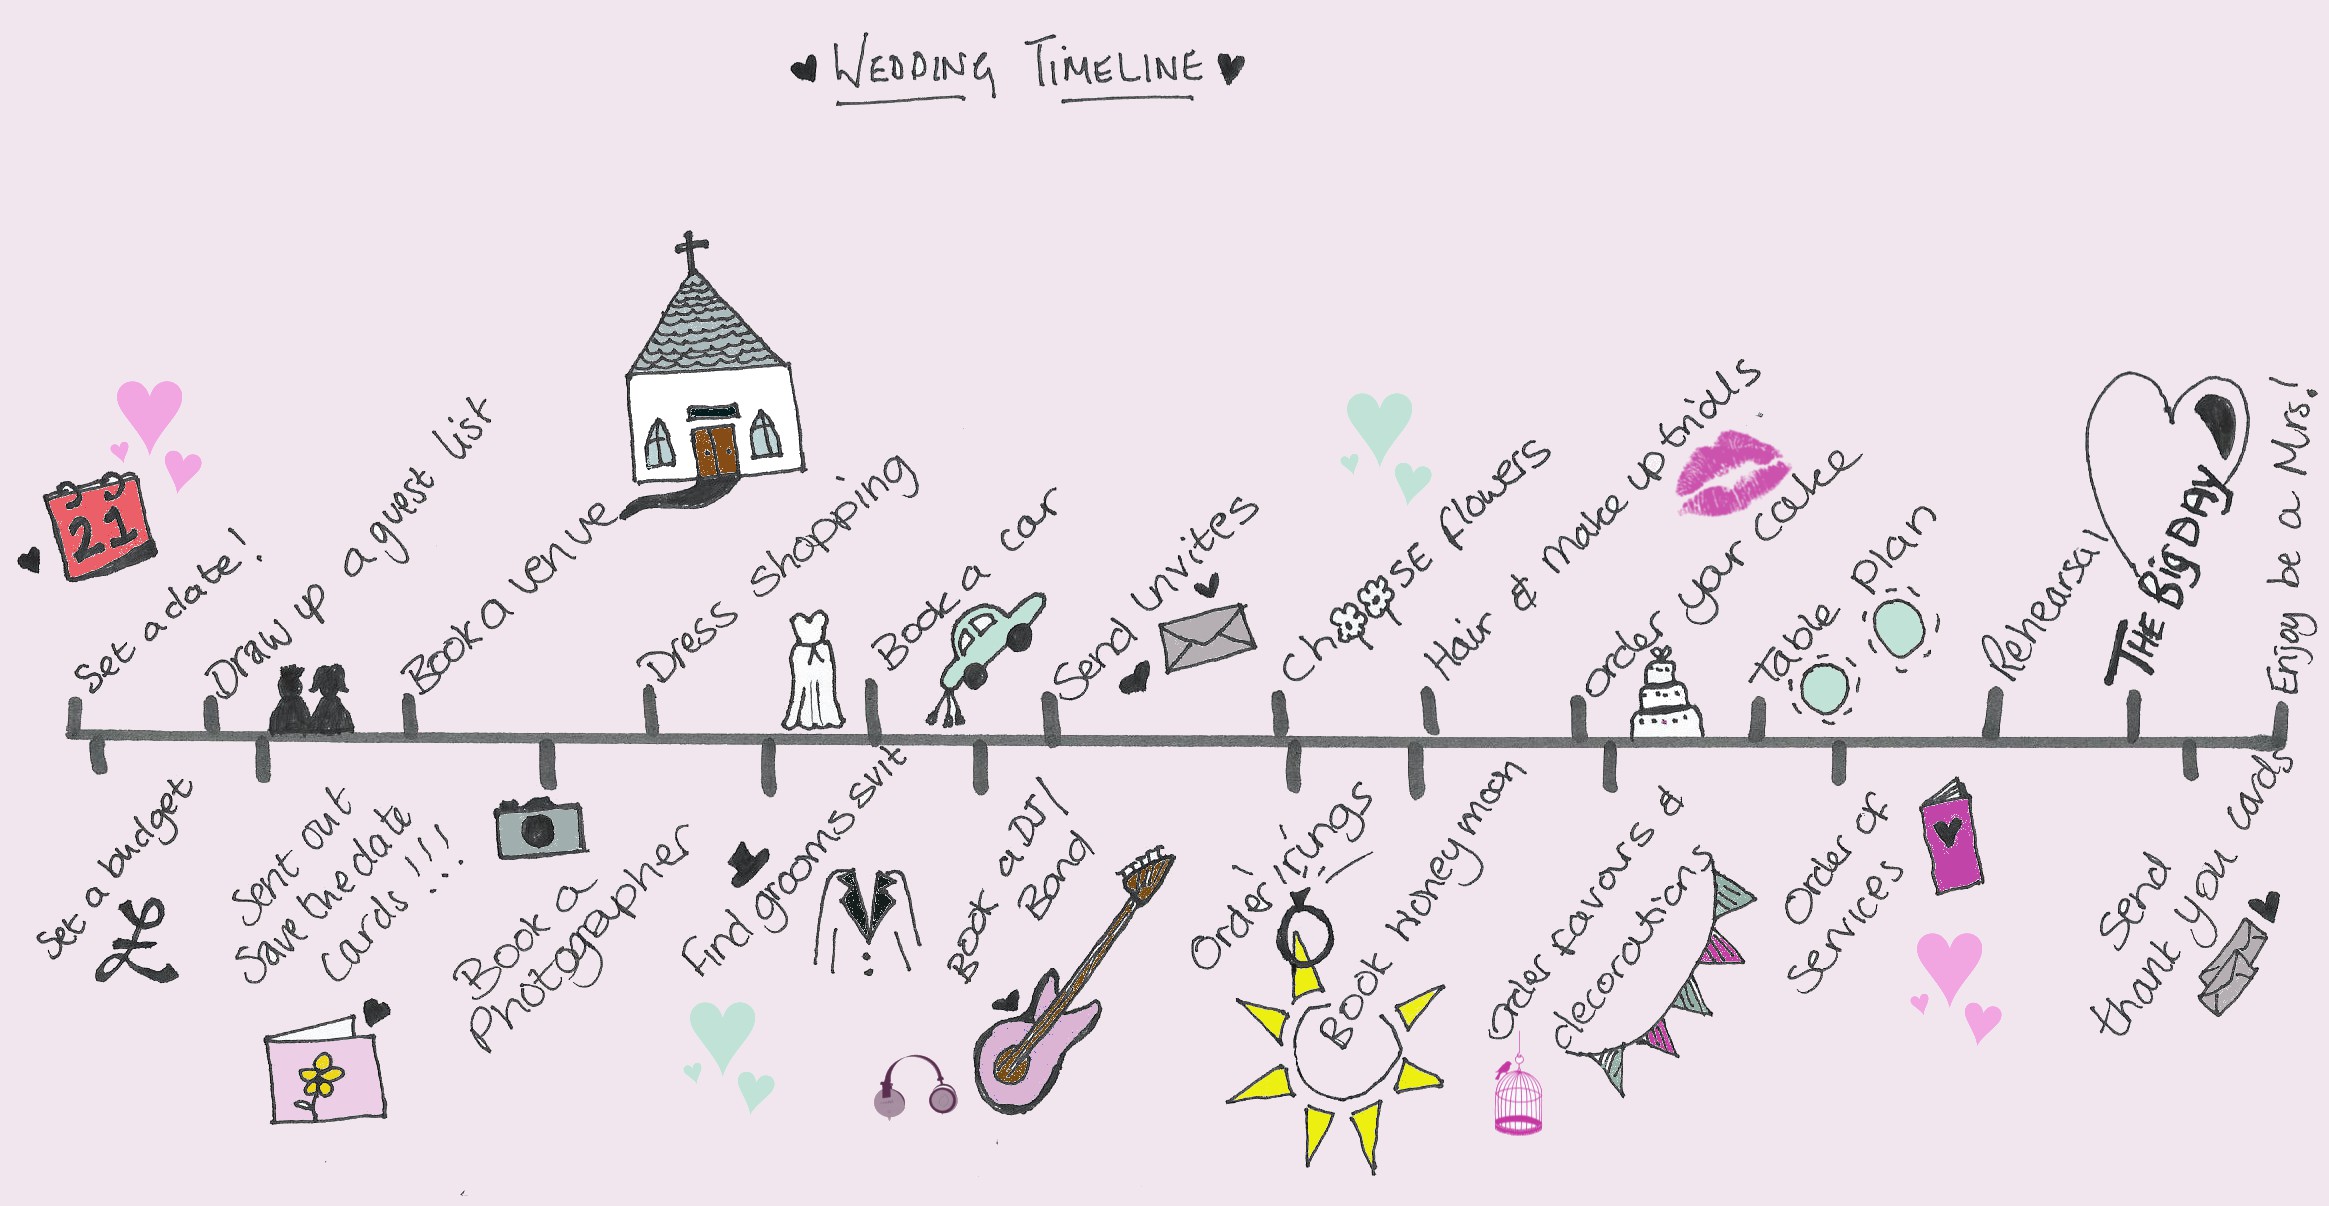 WEDDING TIMELINE
21
Set a date!
Draw up a guest list
Book a venue
Dress shopping
Book a car
Send invites
ChOOSE flowers
Hair & make up trials
order your cake
Table Plan
Rehearsal
THE Big DAY
Enjoy be a Mrs!
Set a budget
£
Sent out
Save the date
cards!!!
Book a
Photographer
Find grooms suit
Book a DJ/
Band
Order rings
Book Honeymoon
Order favours &
decorations
Order of
Services
Send
thank you cards